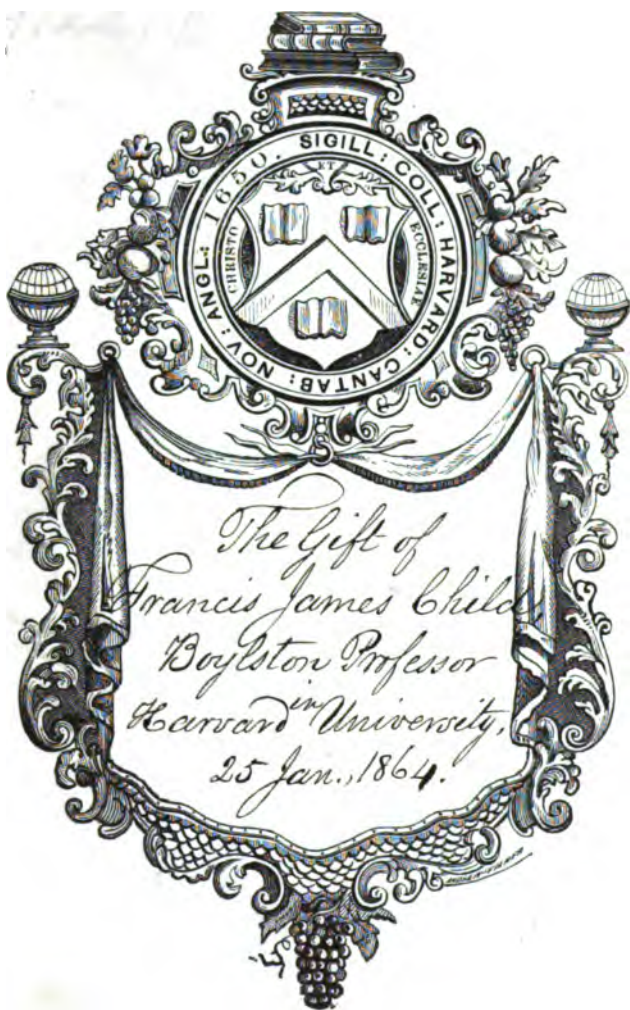 SIGILL: COLL: HARVARD: CANTAB: NOV: ANGL: 1650.
CHRISTO
ET
ECCLESIAE
The Gift of
Francis James Child,
Boylston Professor
in
Harvard University,
25 Jan., 1864.